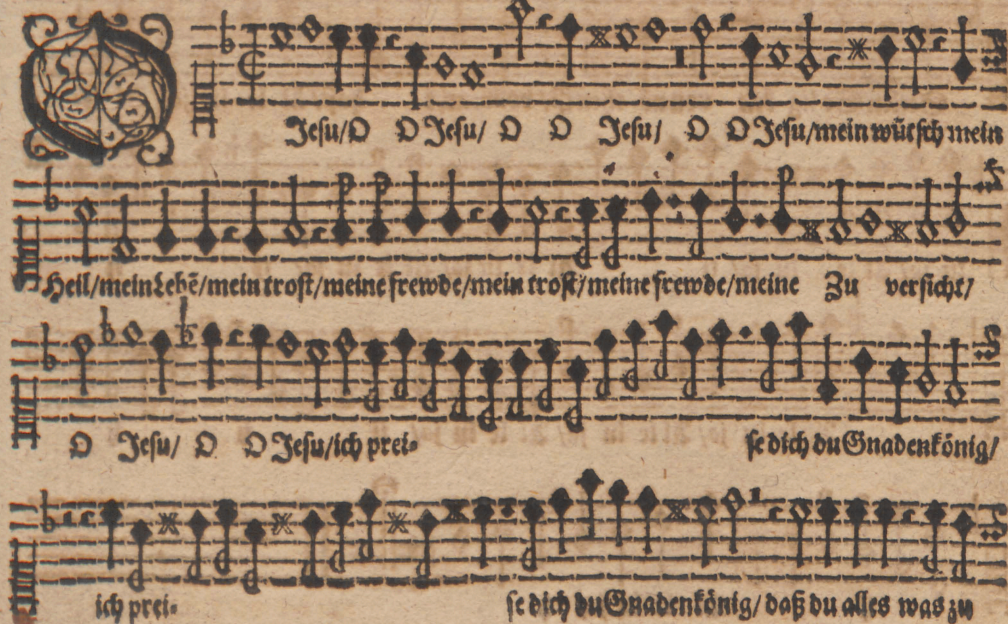 O Jesu/ O O Jesu/ O O Jesu/ O O Jesu/ mein wũtsch mein
Heil/ mein Lebẽ/ mein trost/ meine frewde/ mein trost/ meine frewde/ meine Zu versicht/
O Jesu/ O O Jesu/ ich prei- se dich du Gnadenkönig/
ich prei- se dich du Gnadenkönig/ daß du alles was zu